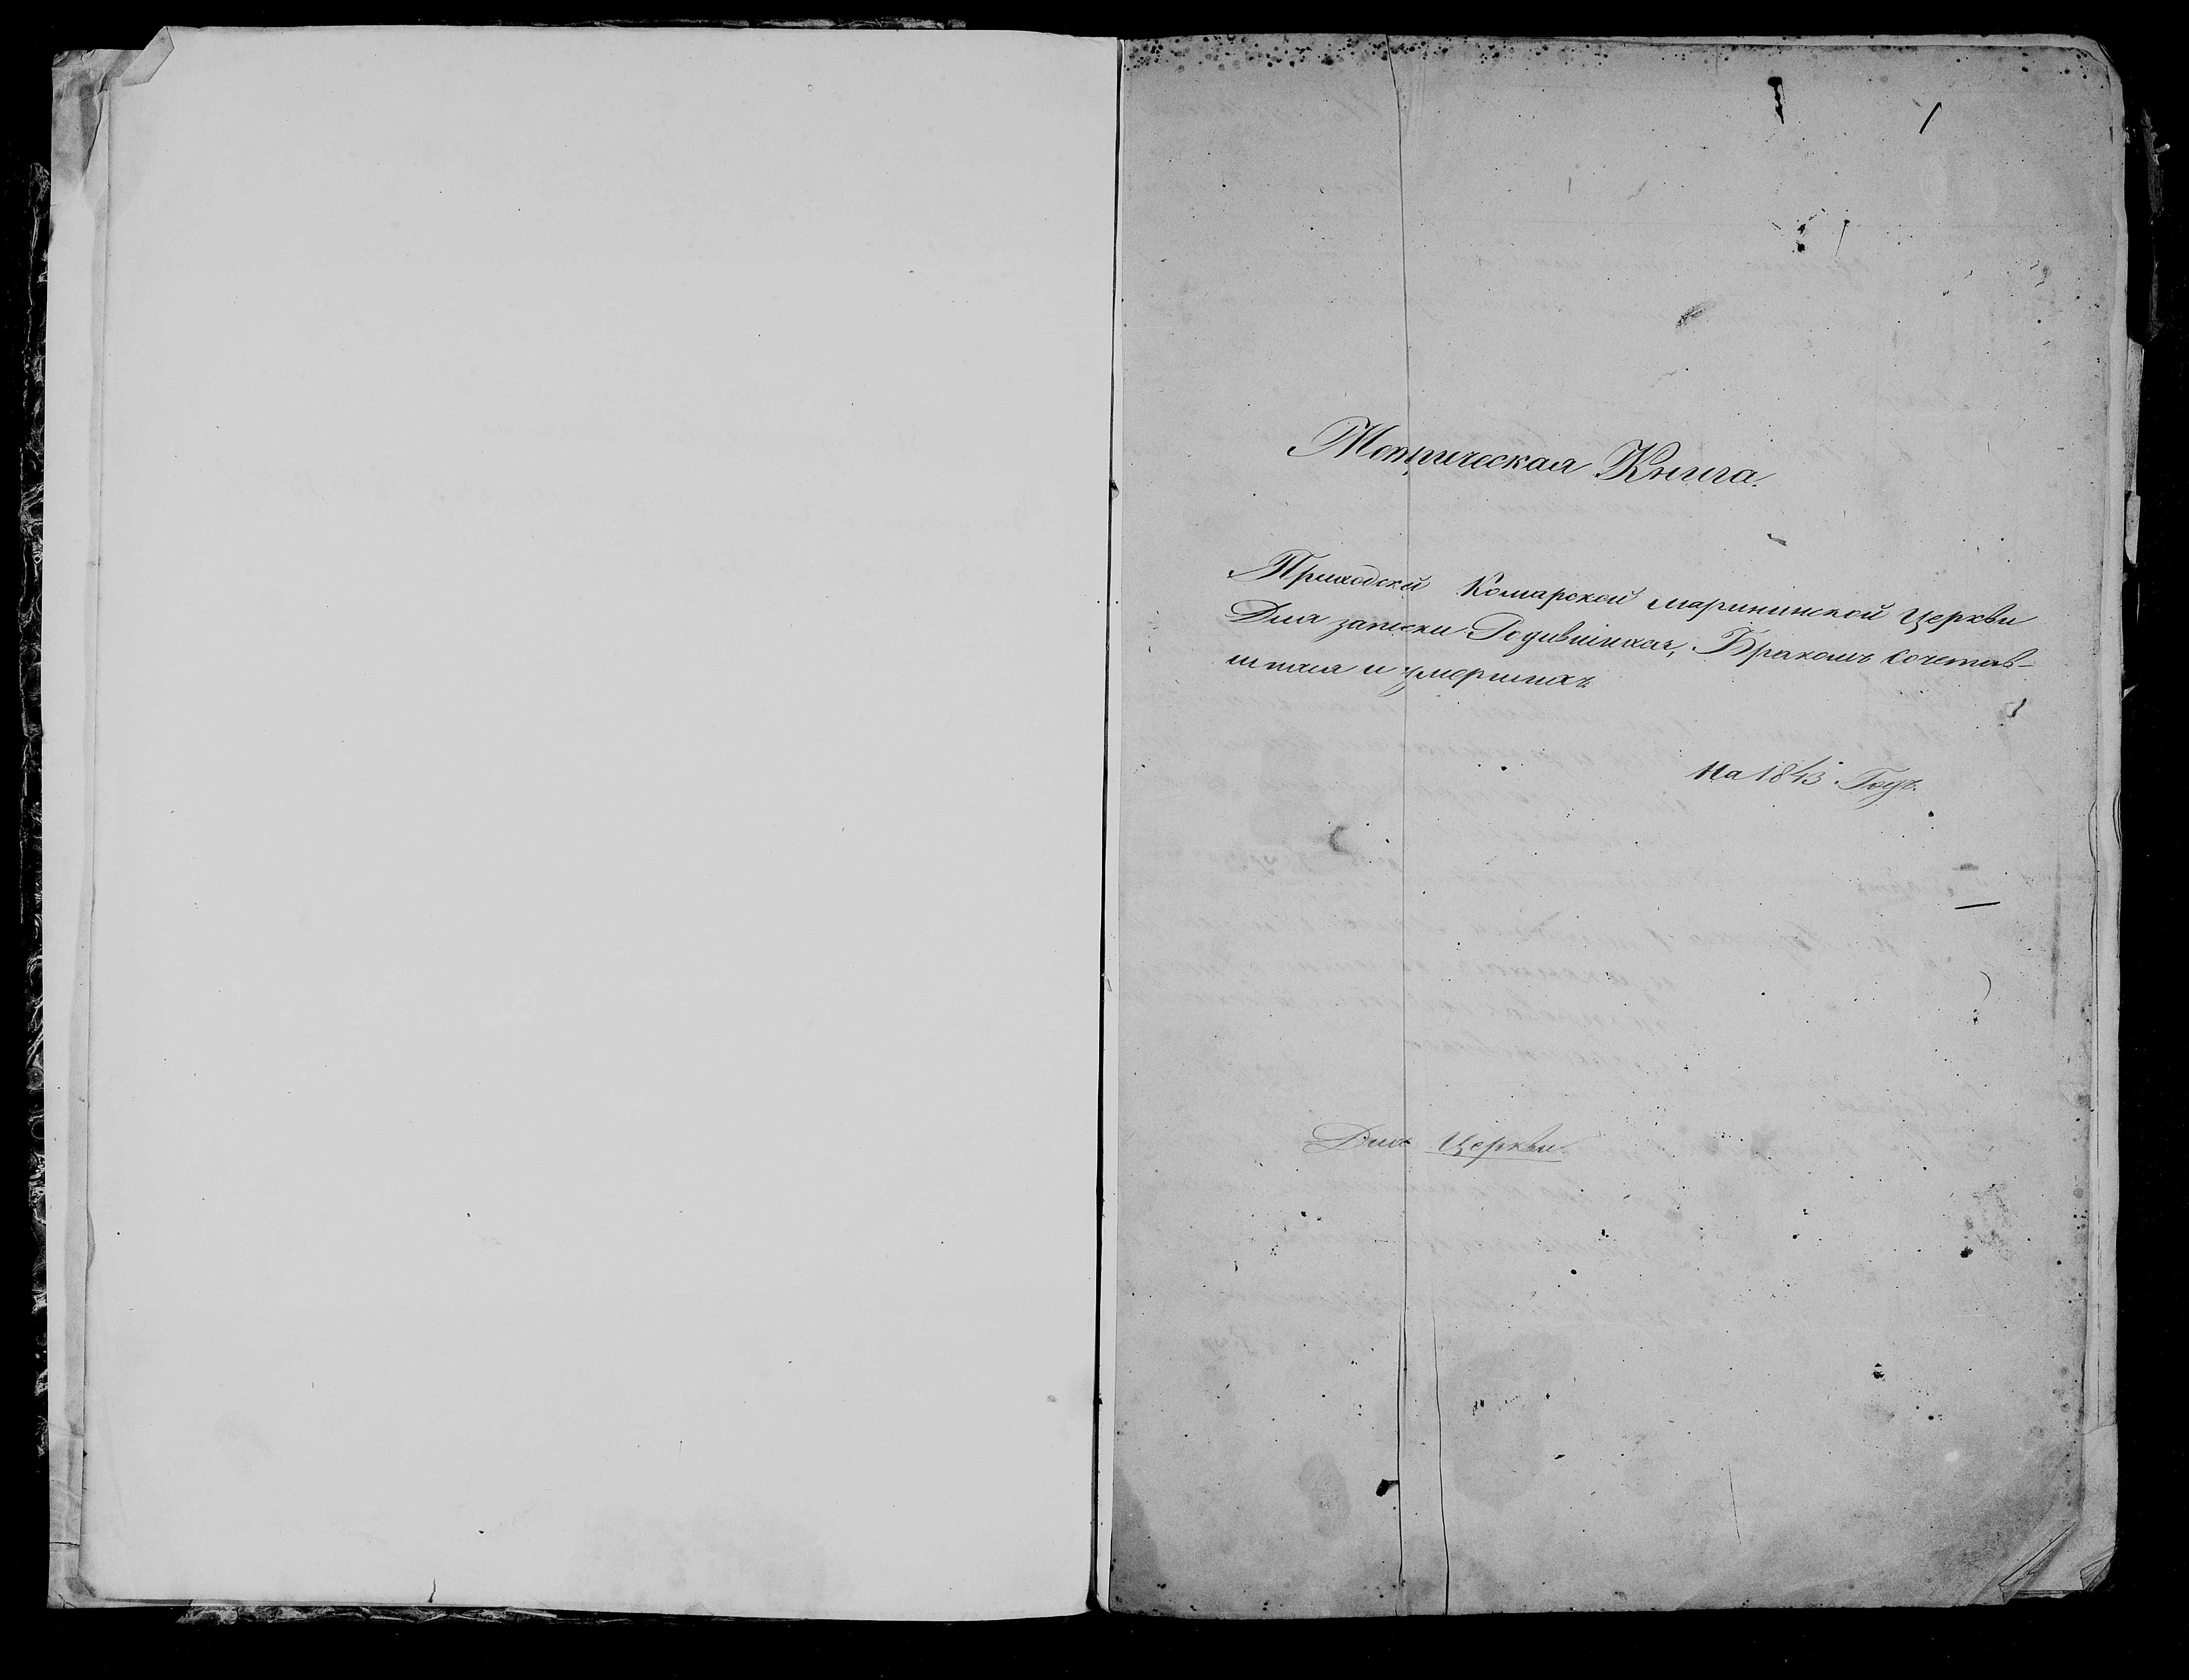 1
Метрическая Книга.
Приходской Комарской марининской Церкви
Для записки Родившихся, Бракомъ Сочетав-
шихся и умершихъ
На 1843 Годъ.
Для Церкви.